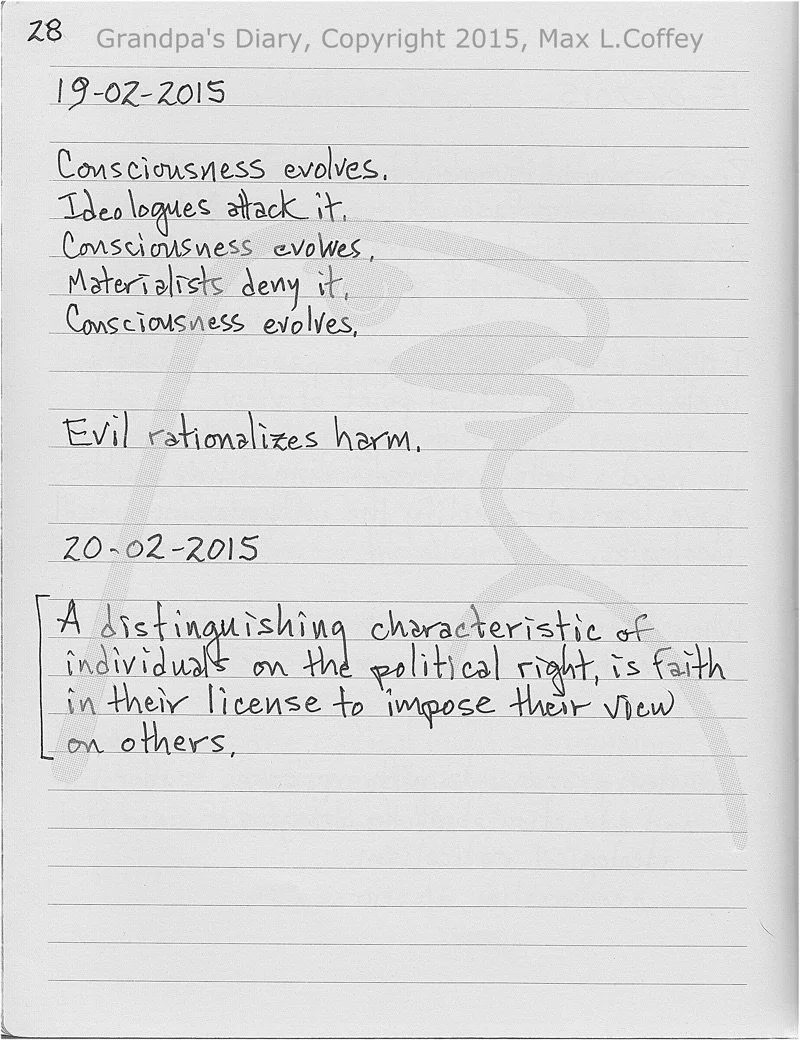 28
Grandpa's Diary, Copyright 2015, Max L.Coffey
19-02-2015
Consciousness evolves.
Ideologues attack it.
Consciousness evolves.
Materialists deny it.
Consciousness evolves.
Evil rationalizes harm.
20-02-2015
A distinguishing characteristic of
individuals on the political right, is faith
in their license to impose their view
on others.